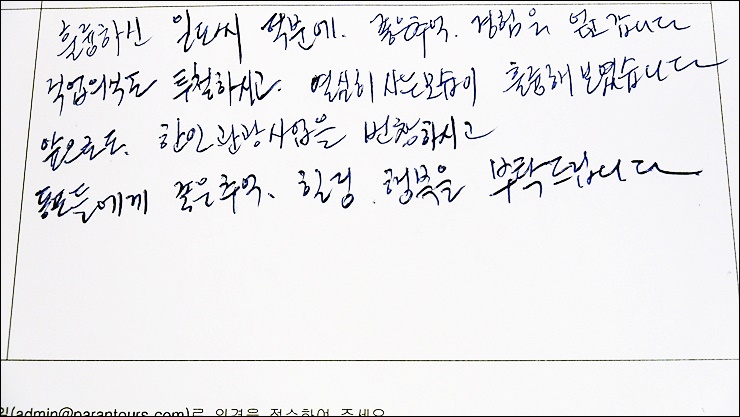 훌륭하신 덕분에. 좋은추억. 경험을 얻고갑니다
직업의식도 투철하시고. 열심히 사는모습이 훌륭해보였습니다
앞으로도. 한인관광사업을 번창하시고
동포들에게 좋은추억. 힐링. 행복을 부탁드립니다
일(admin@parantours.com)로 의견을 접수하여 주세요